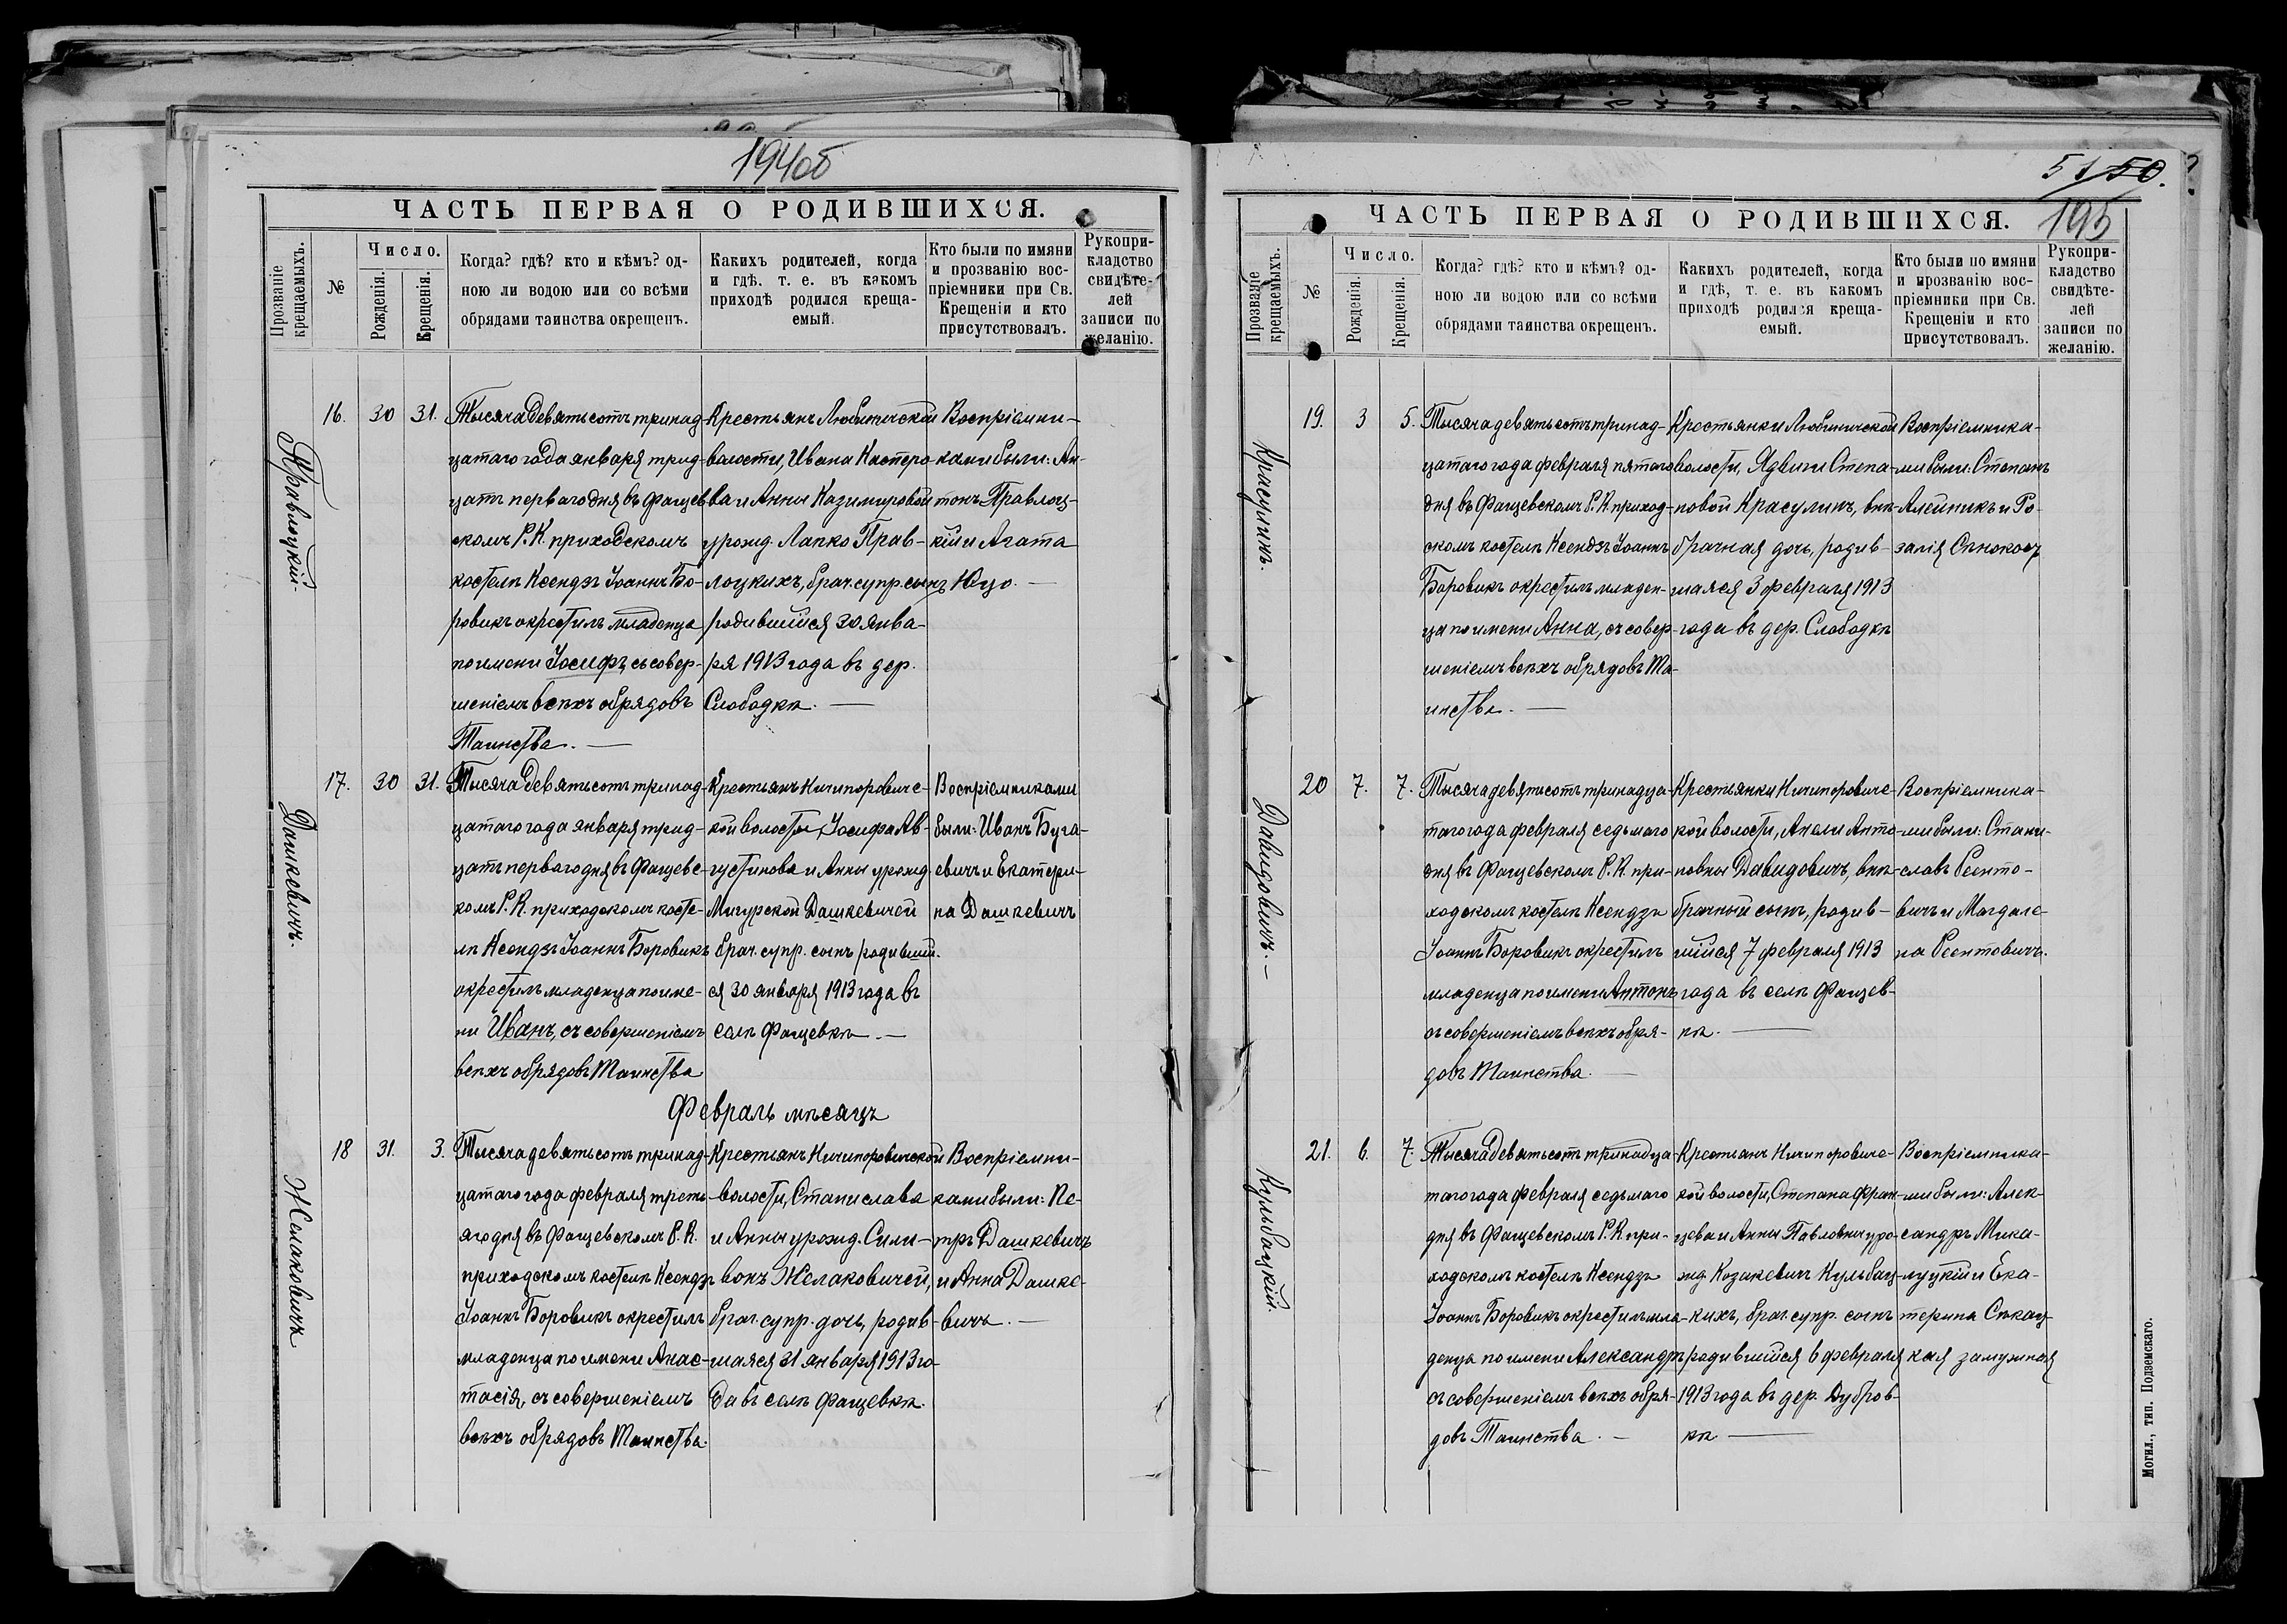 194об
ЧАСТЬ ПЕРВАЯ О РОДИВШИХСЯ.
Прозваніе крещаемыхъ.
№
Число.
Рожденія.
Крещенія.
Когда? гдѣ? кто и кѣмъ? од-
ною ли водою или со всѣми
обрядами таинства окрещенъ.
Какихъ родителей, когда
и гдѣ. т. е. въ какомъ
приходѣ родился креща-
емый.
Кто были по имяни
и прозванію вос-
пріемники при Св.
Крещеніи и кто
присутствовалъ.
Рукопри-
кладство
свидѣте-
лей
записи по
желанію.
Правлоцкій.
16.
30
31.
Тысяча девятьсотъ тринад-
цатаго года января трид-
цать перваго дня въ Фащев
скомъ Р. К. приходскомъ
костелѣ Ксендзъ Іоаннъ Бо-
ровикъ окрестилъ младенца
по имени Іосифъ, съ совер-
шеніемъ всѣхъ обрядовъ
Таинства. —
Крестьянъ Любиничской
волости, Ивана Касперо-
ва и Анны Казимировой
урожд. Лапко Прав-
лоцкихъ, брач. супр. сынъ
родившійся 30 янва-
ря 1913 года въ дер.
Слободкѣ. —
Воспріемни-
ками были: Ан-
тонъ Правлоц-
кій и Агата
Юцо. —
Дашкевичъ.
17.
30
31.
Тысяча девятьсотъ тринад-
цатаго года января трид-
цать перваго дня въ Фащевс-
комъ Р. К. приходскомъ косте-
лѣ Ксендзъ Іоаннъ Боровикъ
окрестилъ младенца по име-
ни Иванъ, съ совершеніемъ
всѣхъ обрядовъ Таинства
Крестьянъ Ничипоровичс-
кой волости, Іосифа Ав-
густинова и Анны урожд.
Мигурской Дашкевичей
брач. супр. сынъ родивший-
ся 30 января 1913 года въ
селѣ Фащевкѣ. —
Воспріемниками
были: Иванъ Буга-
евичъ и Екатери-
на Дашкевичъ
Февраль мѣсяцъ
Желаковичъ
18
31.
3.
Тысяча девятьсотъ тринад-
цатаго года февраля треть-
яго дня въ Фащевскомъ Р. К.
приходскомъ костелѣ Ксендзъ
Іоаннъ Боровикъ окрестилъ
младенца по имени Анас-
тасія, съ совершеніемъ
всѣхъ обрядовъ Таинства.
Крестьянъ Ничипоровичской
волости, Станислава
и Анны урожд. Сили-
вонъ Желаковичей,
брач. супр. дочь, родив-
шаяся 31 января 1913 го-
да въ селѣ Фащевкѣ.
Воспріемни-
ками были: Пе-
тръ Дашкевичъ
и Анна Дашке-
вичъ. —
51/50.
195
ЧАСТЬ ПЕРВАЯ О РОДИВШИХСЯ.
Прозваніе крещаемыхъ.
№
Число.
Рожденія.
Крещенія.
Когда? гдѣ? кто и кѣмъ? од-
ною ли водою или со всѣми
обрядами таинства окрещенъ.
Какихъ родителей, когда
и гдѣ, т. е. въ какомъ
приходѣ родился креща-
емый.
Кто были по имяни
и прозванію вос-
пріемники при Св.
Крещеніи и кто
присутствовалъ.
Рукопри-
кладство
свидѣте-
лей
записи по
желанію.
Красулинъ.
19.
3
5.
Тысяча девятьсотъ тринад-
цатаго года февраля пятаго
дня въ Фащевскомъ Р. К. приход-
скомъ костелѣ Ксендзъ Іоаннъ
Боровикъ окрестилъ младен-
ца по имени Анна, съ совер-
шеніемъ всѣхъ обрядовъ Та-
инства. —
Крестьянки Любиничской
волости, Ядвиги Степа-
новой Красулинъ, внѣ-
брачная дочь, родив-
шаяся 3 февраля 1913
года въ дер. Слободкѣ
Воспріемника-
ми были: Степанъ
Алейникъ и Ро-
залія Сѣнокосъ
Давидовичъ. —
20
7.
7.
Тысяча девятьсотъ тринадца-
таго года февраля седьмаго
дня въ Фащевскомъ Р. К. при-
ходскомъ костелѣ Ксендзъ
Іоаннъ Боровикъ окрестилъ
младенца по имени Антонъ
съ совершеніемъ всѣхъ обря-
довъ Таинства. —
Крестьянки Ничипоровичс-
кой волости, Анели Анто-
новны Давидовичъ, внѣ-
брачный сынъ, родив-
шійся 7 февраля 1913
года въ селѣ Фащев-
кѣ. —
Воспріемника-
ми были: Стани-
славъ Реенто-
вичъ и Магдале-
на Реентовичъ.
Кульбацкій.
21.
6.
7.
Тысяча девятьсотъ тринадца-
таго года февраля седьмаго
дня въ Фащевскомъ Р. К. при-
ходскомъ костелѣ Ксендзъ
Іоаннъ Боровикъ окрестилъ мла-
денца по имени Александръ
съ совершеніемъ всѣхъ обря-
довъ Таинства. —
Крестьянъ Ничипоровичс-
кой волости, Степана Фран-
цева и Анны Павловны уро-
жд. Козакевичъ Кульбац-
кихъ, брач. супр. сынъ
родившійся 6 февраля
1913 года въ дер. Дубров-
кѣ. —
Воспріемника-
ми были: Алек-
сандръ Мика-
луцкій и Ека-
терина Сѣкац-
кая замужняя
Могил., тип. Подземскаго.